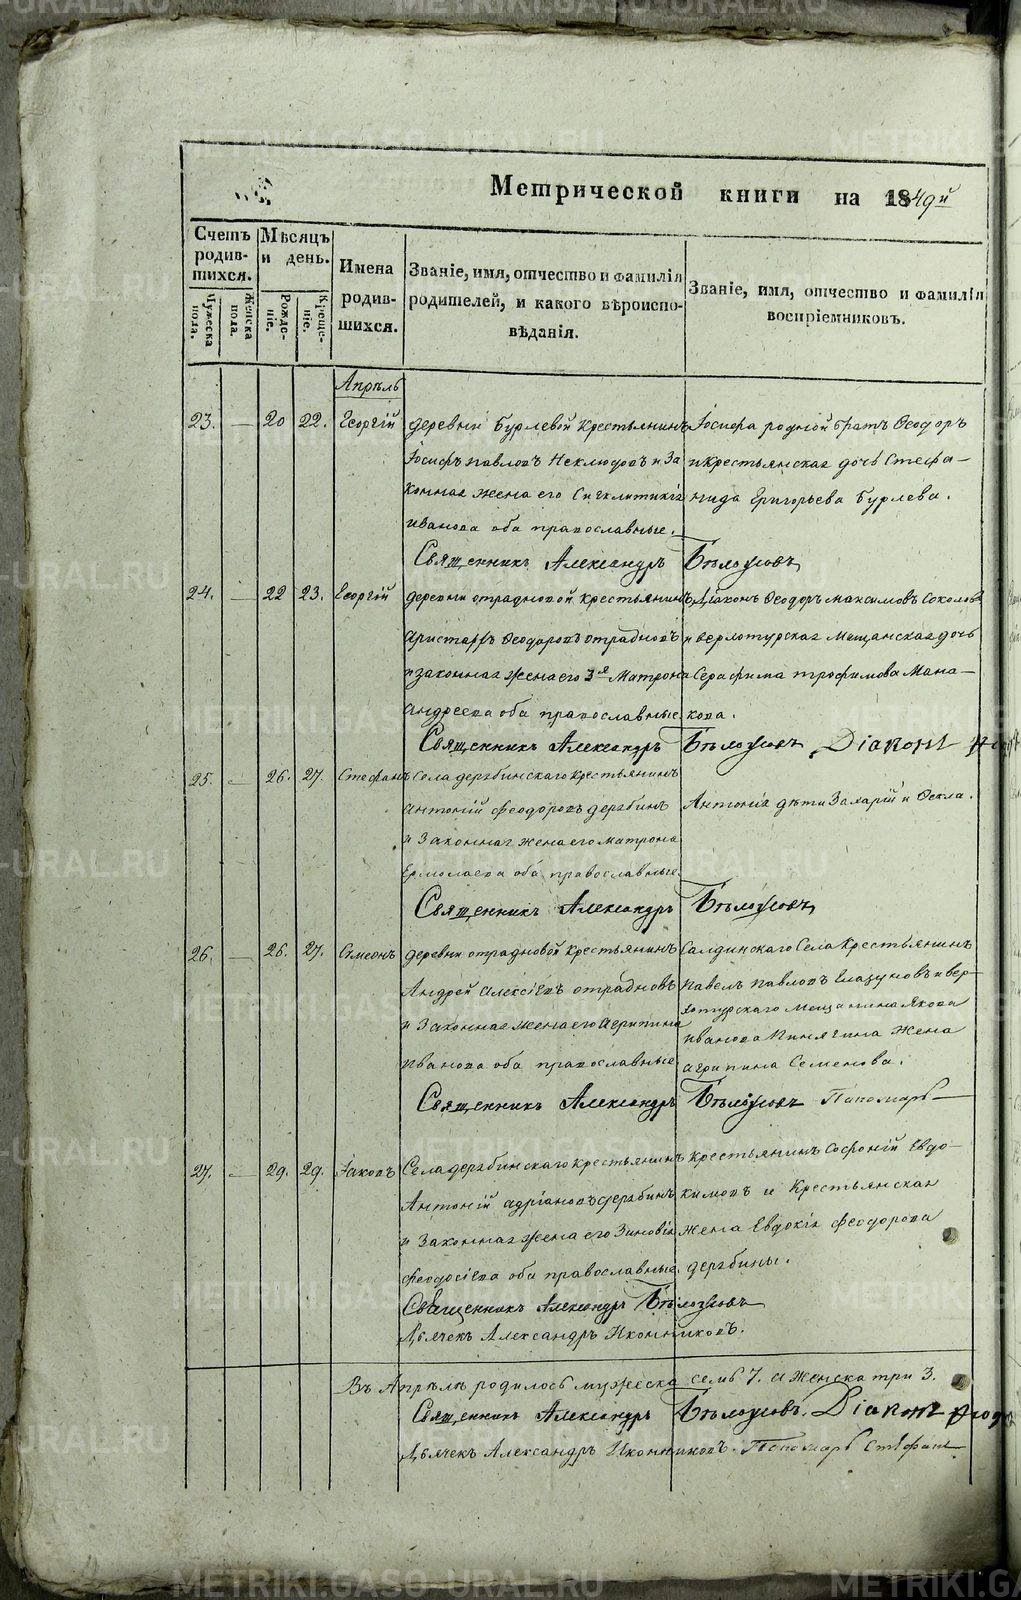 METRIKI.GASO-URAL.RU
Метрической книги на 1849й
Счетъ родив-шихся.
Мужеска пола.
Женска пола.
Мѣсяцъ и день.
Рожде-ніе.
Креще-ніе.
Имена родив-шихся.
Званіе, имя, отчество и фамилія родителей, и какого вѣроиспо-вѣданія.
Званіе, имя, отчество и фамилія воспріемниковъ.
Апрѣль
23. — 20 22. Георгій деревни Бурлевой крестьянинъ Іосифа родной братъ Ѳеодоръ
Іосифъ павловъ Неклюдовъ и за и крестьянская дочь Стефа-
конная жена его Сигклитикіа нида Григорьева Бурлева.
иванова оба православные.
Священникъ Александръ Бѣлоусовъ
24. — 22 23. Георгій деревни отрадновой крестьянинъ Діаконъ Ѳеодоръ максимовъ Соколовъ
Аристархъ Ѳеодоровъ отрадновъ и верхотурская мещанская дочь
и законная жена его 3я Матрона Серафима трофимова Мана-
андреева оба православные. кова.
Священникъ Александръ Бѣлоусовъ Діаконъ
25. — 26. 27. Стефанъ Села дерябинскаго крестьянинъ
антоній феодоровъ дерябинъ Антонія дѣти Захарій и Ѳекла.
и Законная жена его матрона
Ермолаева оба православные
Священникъ Александръ Бѣлоусовъ
26. — 26. 27. Симеонъ деревни отрадновой крестьянинъ Салдинскаго Села Крестьянинъ
Андрей алексіевъ отрадновъ павелъ павловъ Глазуновъ и вер-
хотурскаго мещанина якова
и Законная жена его Агрипина иванова Пинягина Жена
иванова оба православные агрипина Семенова.
Священникъ Александръ Бѣлоусовъ Пономарь
27. — 29. 29. Іаковъ Села дерябинскаго крестьянинъ крестьянинъ Софроній Евдо-
Антоній адріановъ дерябинъ кимовъ и Крестьянская
и Законная жена его Зиновія жена Евдокія феодорова
феодосіева оба православные. дерябины.
Священникъ Александръ Бѣлоусовъ
Дьячекъ Александръ Иконниковъ.
Въ Апрѣлѣ родилось мужеска семь 7. и Женска три 3.
Священникъ Александръ Бѣлоусовъ. Діаконъ
Дьячекъ Александръ Иконниковъ. Пономарь Стефанъ